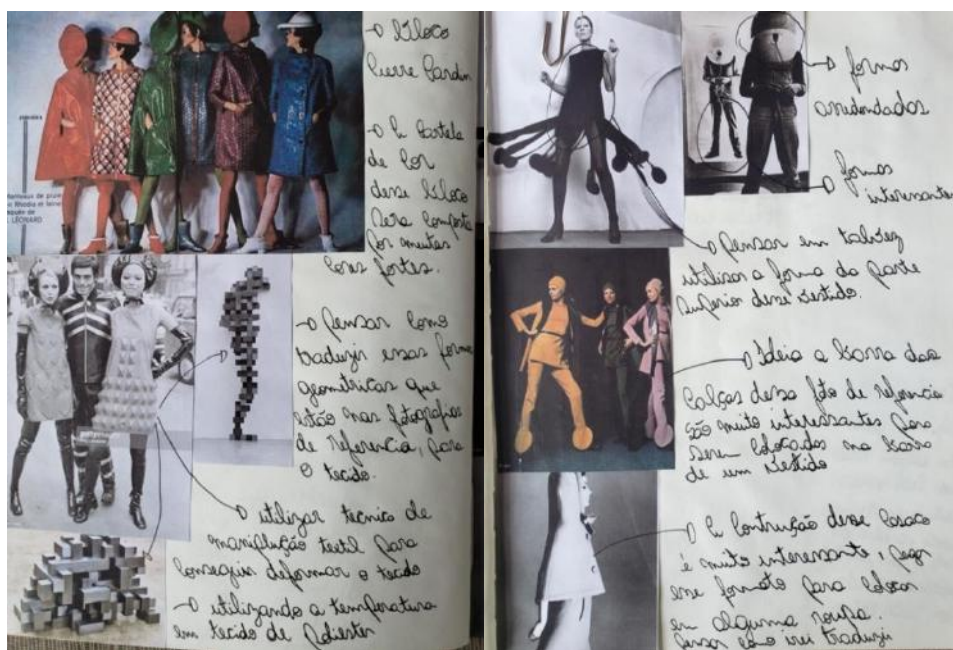 Bloco
Pierre Cardin
A Cartela
de Cor
desse bloco
sera composta
por muitas
cores fortes.
LÉONARD
Pensar como
traduzir essas formas
geometricas que
estão nas fotografias
de referencia, para
o tecido.
utilizar tecnica de
manipulação textil para
conseguir deformar o tecido
utilizando a temperatura
em tecido de poliester
formas
arredondadas
formas
interessantes
Pensar em talvez
utilizar a forma da parte
superior desse vestido.
Ideia a barra das
calças dessa foto de referencia
são muito interessantes para
serem colocadas na barra
de um vestido
A Contrução desse casaco
é muito interessante, pegar
esse formato para colocar
em alguma roupa.
Pensar como irei traduzir